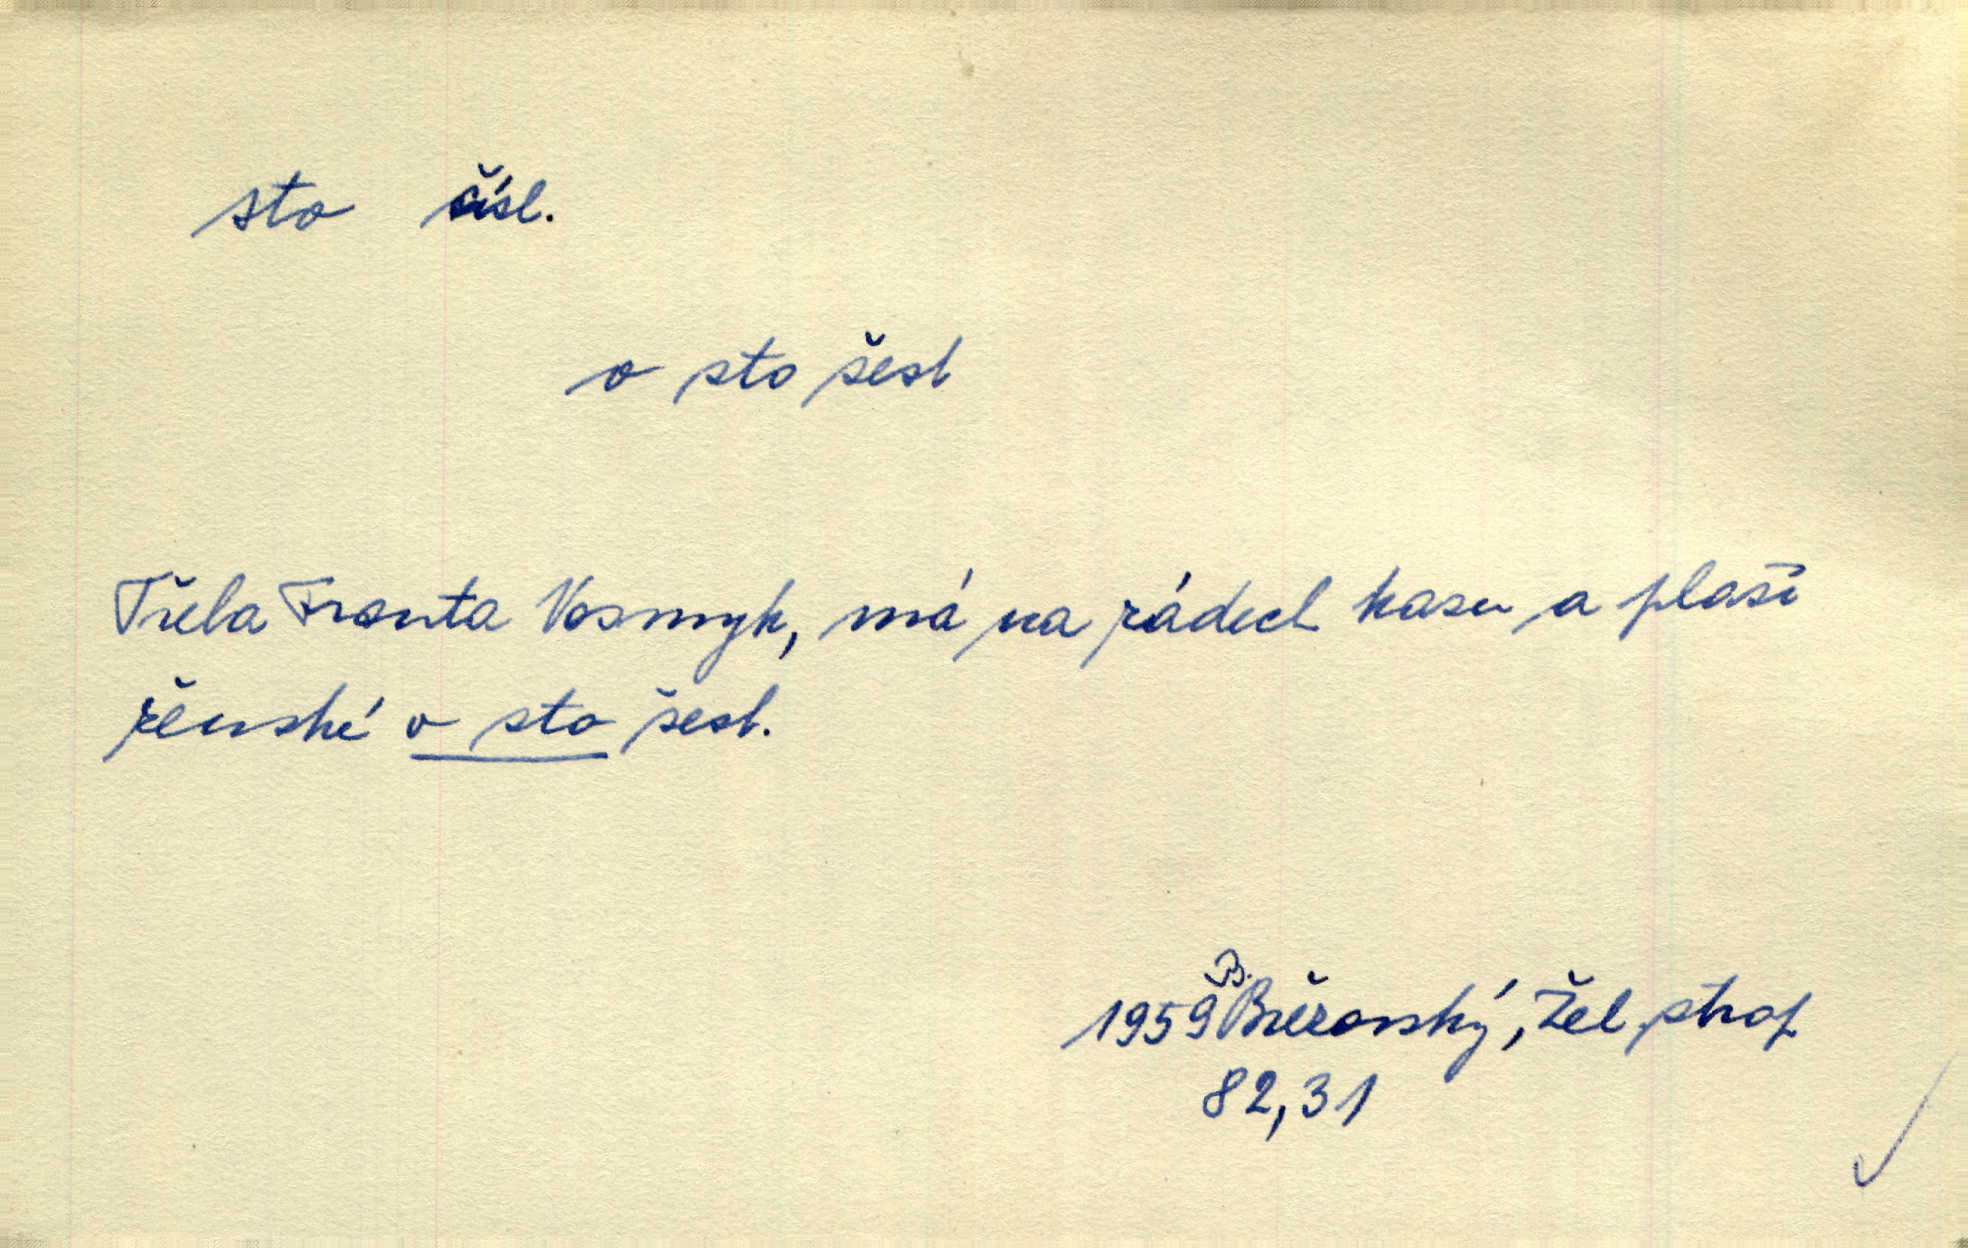 sto čísl.
o sto šest
Třeba Franta Vosmyk, má na zádech kasu a plaší
ženské o sto šest.
1959 Březovský, Žel. strop
82,31